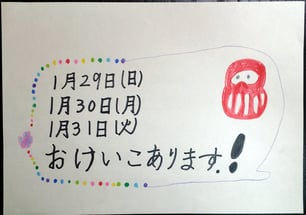 1月29日(日)
1月30日(月)
1月31日(火)
おけいこあります。!